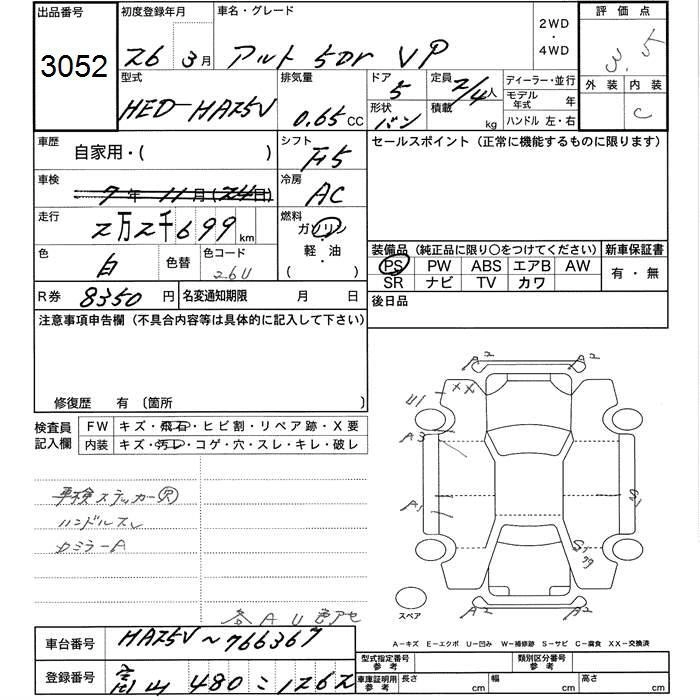 出品番号 3052
初度登録年月 26年 3月
車名・グレード アルト 5Dr VP
2WD・4WD
評価点 3.5
外装 内装 C
型式 HBD-HA25V
排気量 0.65 CC
ドア 5 形状 バン
定員 2/4人 積載 kg
ディーラー・並行
モデル年式 年
ハンドル 左・右
車歴 自家用・( )
シフト F5
セールスポイント(正常に機能するものに限ります)
車検 7年 11月(24日)
冷房 AC
走行 2万2千699km
燃料 ガソリン 軽・油 ( )
色 白 色替 色コード 26U
装備品(純正品に限り○をつけてください) 新車保証書
PS PW ABS エアB AW
SR ナビ TV カワ
有・無
R券 8350円 名変通知期限 月 日
後日品
注意事項申告欄(不具合内容等は具体的に記入して下さい)
修復歴 有〔箇所 〕
検査員記入欄
FW キズ・飛石・ヒビ割・リペア跡・X要
内装 キズ・汚レ・コゲ・穴・スレ・キレ・破レ
車検ステッカー欠
ハンドルスレ
各AU色アセ
A2 A2
U1 XX
A3
A1
S1
A2 A2
スペア
A-キズ E-エクボ U-凹み W-補修跡 S-サビ C-腐食 XX-交換済
車台番号 HA25V~766367
型式指定番号 参考 類別区分番号 参考
登録番号 富山 480 こ 1262
車庫証明用 参考 長さ cm 幅 cm 高さ cm